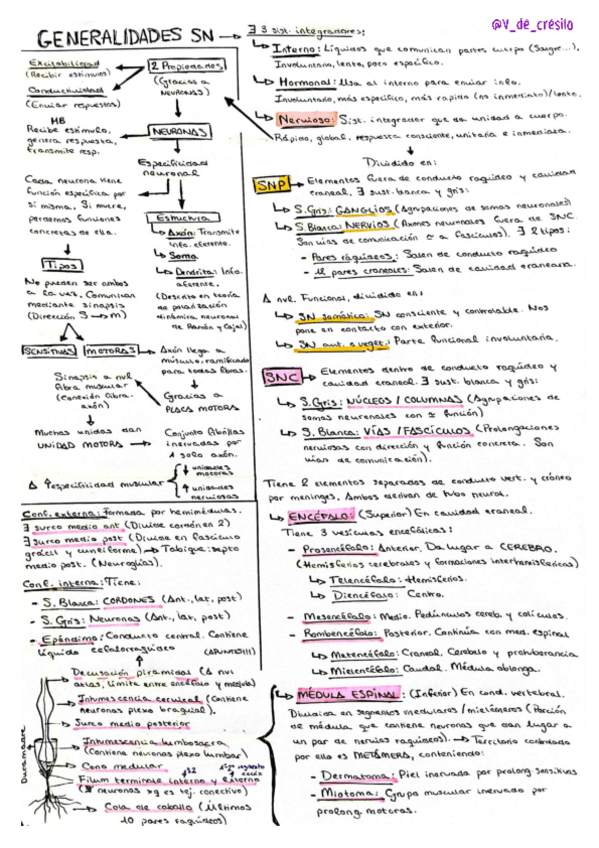 @V_de_cresilo
GENERALIDADES SN → ∃ 3 sist. integradores:
Excitabilidad
(Recibir estímulos)
Conductividad
(Enviar respuestas)
2 Propiedades
(Gracias a
NEURONAS)
MB
Recibe estímulo,
genera respuesta,
transmite resp.
NEURONAS
Especificidad
neuronal
Cada neurona tiene
función específica por
si misma. Si muere,
perdemos funciones
concretas de ella.
Estructura
Axón: Transmite
info. eferente.
Soma
Dendrita: Info.
aferente.
(Descrito en teoría
de polarización
dinámica neuronal
de Ramón y Cajal)
Tipos
No pueden ser ambos
a la vez. Comunican
mediante sinapsis
(Dirección S → m)
SENSITIVAS
MOTORAS
Axón llega a
músculo, ramificado
para todas fibras.
Sinapsis a nvl
fibra muscular
(Conexión fibra.
axón)
Gracias a
PLACA MOTORA
Muchas unidas dan
UNIDAD MOTORA
Conjunto fibrillas
inervadas por
1 solo axón.
Δ ↑especificidad muscular
↓ unidades
motoras
↑ unidades
nerviosas
Conf. externa: Formada por hemimédulas.
∃ surco medio ant (Divide cordón en 2)
∃ surco medio post (Divide en fascículo
grácil y cuneiforme) → Tabique: septo
medio post. (Neuroglías).
Conf. interna: Tiene:
- S. Blanca: CORDONES (Ant, lat, post)
- S. Gris: Neuronas (Ant, lat, post)
- Epéndimo: Conducto central. Contiene
líquido cefalorraquídeo
(APUNTO!!!)
Duramadre
Decusación piramidal (Δ nvl
atlas, límite entre encéfalo y médula)
Intumescencia cervical (Contiene
neuronas plexo braquial).
Surco medio posterior
Intumescencia lumbosacra
(Contiene neuronas plexo lumbar)
Cono medular
Filum terminale interno y externo
neuronas xq es tej. conectivo)
Cola de caballo (Últimos
10 pares raquídeos)
Interno: Líquidos que comunican partes cuerpo (Sangre...).
Involuntario, lento, poco específico.
Hormonal: Usa al interno para enviar info.
Involuntario, más específico, más rápida (no inmediato)/lento.
Nervioso: Sist. integrador que da unidad a cuerpo.
Rápido, global, respuesta consciente, unitaria e inmediata.
Dividido en:
SNP → Elementos fuera de conducto raquídeo y cavidad
craneal. ∃ sust. blanca y gris:
S. Gris: GANGLIOS (Agrupaciones de somas neuronales)
S. Blanca: NERVIOS (Axones neuronales fuera de SNC.
Son vías de comunicación ≃ a fascículos). ∃ 2 tipos:
- Pares raquídeos: Salen de conducto raquídeo
- 12 pares craneales: Salen de cavidad craneana.
Δ nvl. Funcional, dividido en:
SN somático: SN consciente y controlable. Nos
pone en contacto con exterior.
SN aut. o veget.: Parte funcional involuntaria.
SNC → Elementos dentro de conducto raquídeo y
cavidad craneal. ∃ sust. blanca y gris:
S. Gris: NÚCLEOS / COLUMNAS (Agrupaciones de
somas neuronales con ≃ función)
S. Blanca: VÍAS / FASCÍCULOS (Prolongaciones
nerviosas con dirección y función concreta. Son
vías de comunicación).
Tiene 2 elementos separados de conducto vert. y cráneo
por meninges. Ambos derivan de tubo neural.
ENCÉFALO: (Superior) En cavidad craneal.
Tiene 3 vesículas encefálicas:
- Prosencéfalo: Anterior. Da lugar a CEREBRO.
(Hemisferios cerebrales y formaciones interhemisféricas)
Telencéfalo: Hemisferios.
Diencéfalo: Centro.
- Mesencéfalo: Medio. Pedúnculos cereb. y colículos.
- Rombencéfalo: Posterior. Continúa con med. espinal
Metencéfalo: Craneal. Cerebelo y protuberancia
Mielencéfalo: Caudal. Médula oblonga.
MÉDULA ESPINAL: (Inferior) En cond. vertebral.
Dividida en segmentos medulares / mielómeros (Porción
de médula que contiene neuronas que dan lugar a
un par de nervios raquídeos). → Territorio controlado
por ella es METÁMERA, conteniendo:
- Dermatoma: Piel inervada por prolong sensitivas
- Miotoma: Grupo muscular inervado por
prolong. motoras.